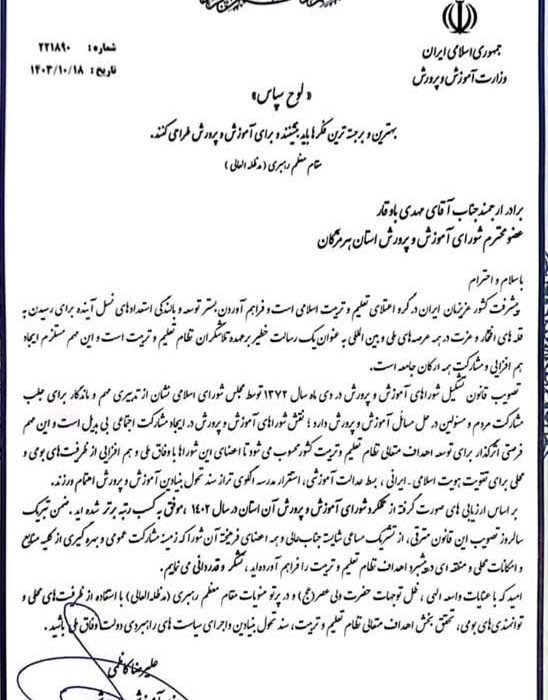 جمهوری اسلامی ایران
وزارت آموزش و پرورش
شماره: ۲۲۱۸۹۰
تاریخ: ۱۴۰۳/۱۰/۱۸
«لوح سپاس»
بهترین و برجسته ترین فکرها باید بنشینند و برای آموزش و پرورش طراحی کنند.
مقام معظم رهبری (مدظله العالی)
برادر ارجمند جناب آقای مهدی باوقار
عضو محترم شورای آموزش و پرورش استان هرمزگان
باسلام و احترام
پیشرفت کشور عزیزمان ایران در گرو اعتلای تعلیم و تربیت اسلامی است و فراهم آوردن بستر توسعه و بالندگی استعدادهای نسل آینده برای رسیدن به
قله های افتخار و عزت در همه عرصه های ملی و بین المللی به عنوان یک رسالت خطیر بر عهده تلاشگران نظام تعلیم و تربیت است و این مهم مستلزم ایجاد
هم افزایی و مشارکت همه ارکان جامعه است.
تصویب قانون تشکیل شوراهای آموزش و پرورش در دی ماه سال ۱۳۷۲ توسط مجلس شورای اسلامی نشان از تدبیری مهم و ماندگار برای جلب
مشارکت مردم و مسئولین در حل مسائل آموزش و پرورش دارد؛ نقش شوراهای آموزش و پرورش در ایجاد مشارکت اجتماعی بی بدیل است و این مهم
فرصتی اثرگذار برای توسعه اهداف متعالی نظام تعلیم و تربیت کشور محسوب می شود تا اعضای این شوراها با وفاق ملی و هم افزایی از ظرفیت های بومی و
محلی برای تقویت هویت اسلامی - ایرانی، بسط عدالت آموزشی، استقرار مدرسه الگوی تراز سند تحول بنیادین آموزش و پرورش اهتمام ورزند.
بر اساس ارزیابی های صورت گرفته از عملکرد شورای آموزش و پرورش آن استان در سال ۱۴۰۲، موفق به کسب رتبه برتر شده اید. ضمن تبریک
سالروز تصویب این قانون مترقی، از تشریک مساعی شایسته جناب عالی و همه اعضای فرهیخته آن شورا که زمینه مشارکت عمومی و بهره گیری از کلیه منابع
و امکانات محلی و منطقه ای در پیشبرد اهداف نظام تعلیم و تربیت را فراهم آورده اید، تشکر و قدردانی می نمایم.
امید که با عنایات واسعه الهی، ظل توجهات حضرت ولی عصر(عج) و در پرتو منویات مقام معظم رهبری (مدظله العالی) با استفاده از ظرفیت های محلی و
توانمندی های بومی، تحقق بخش اهداف متعالی نظام تعلیم و تربیت، سند تحول بنیادین و اجرای سیاست های راهبردی دولت وفاق ملی باشید.
علیرضا کاظمی